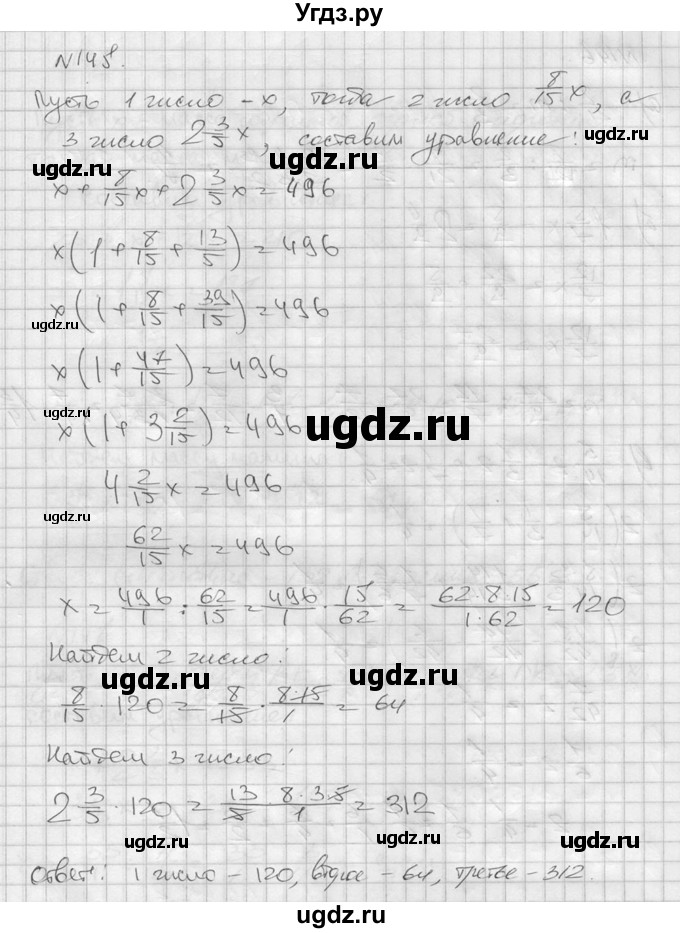 Угдз.ру
N148.
Пусть 1 число - x, тогда 2 число 8/15 x, а
3 число 2 3/5 x, составим уравнение:
ugdz.ru ugdz.ru
x + 8/15 x + 2 3/5 x = 496
x(1 + 8/15 + 13/5) = 496
x(1 + 8/15 + 39/15) = 496
ugdz.ru
x(1 + 47/15) = 496
x(1 + 3 2/15) = 496
ugdz.ru
4 2/15 x = 496
ugdz.ru
62/15 x = 496
x = 496/1 : 62/15 = 496/1 · 15/62 = 62·8·15/1·62 = 120
Найдем 2 число:
ugdz.ru ugdz.ru
8/15 · 120 = 8/15 · 8·15/1 = 64
Найдем 3 число:
2 3/5 · 120 = 13/5 8·3·5/1 = 312
ugdz.ru ugdz.ru ugdz.ru
Ответ: 1 число - 120, второе - 64, третье - 312.
ugdz.ru